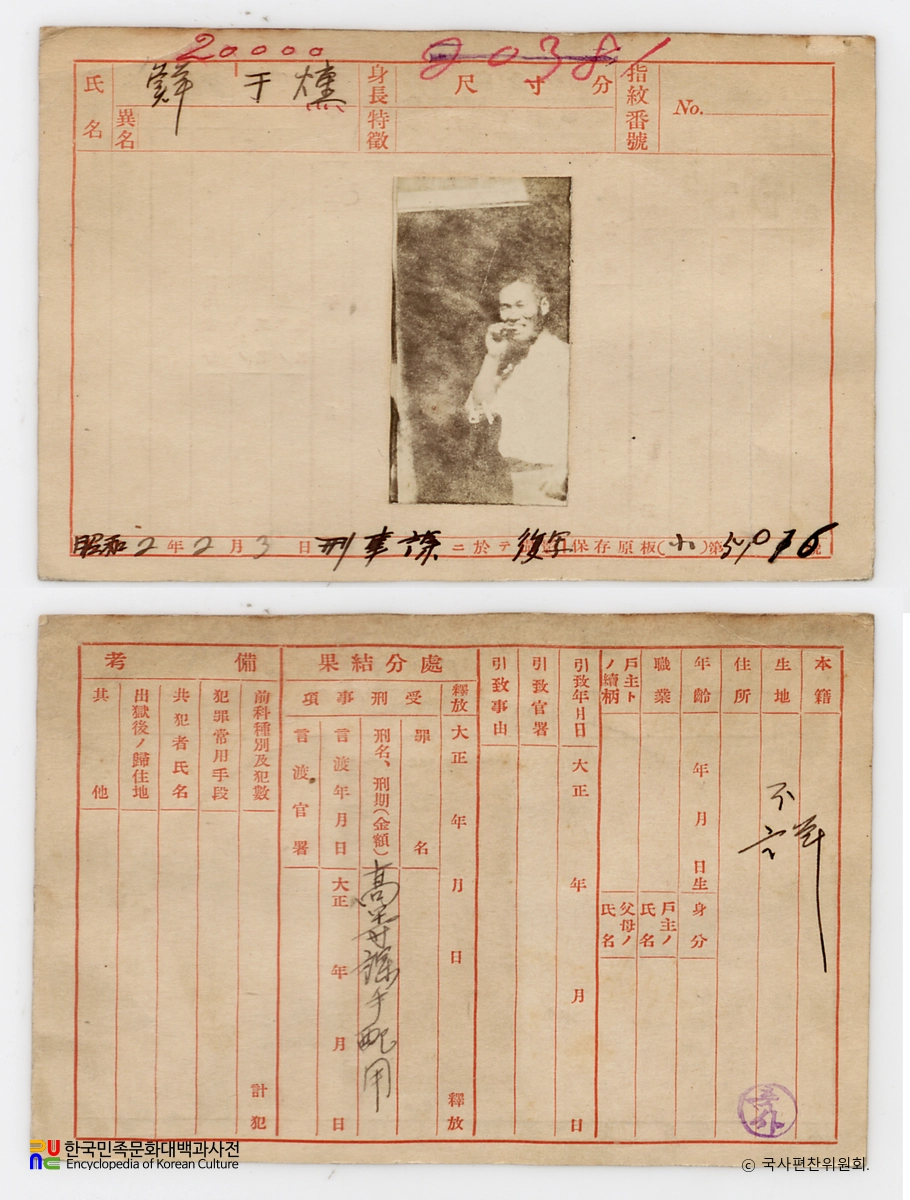 20000
20381
氏名
鮮于燻
異名
身長特徴
尺 寸 分
指紋番號
No.
昭和2年2月3日刑事課ニ於テ複寫保存原板(小)第
本籍
生地
住所
不詳
年齡
年 月 日生
身分
職業
戶主ノ氏名
戶主トノ續柄
父母ノ氏名
引致年月日
大正 年 月 日
引致官署
引致事由
處分結果
釋放
大正 年 月 日 釋放
受刑事項
罪名
刑名、刑期(金額)
高等課手配用
言渡年月日
大正 年 月 日
言渡官署
備考
前科種別及犯數
計 犯
犯罪常用手段
共犯者氏名
出獄後ノ歸住地
其他
한국민족문화대백과사전
Encyclopedia of Korean Culture
© 국사편찬위원회.